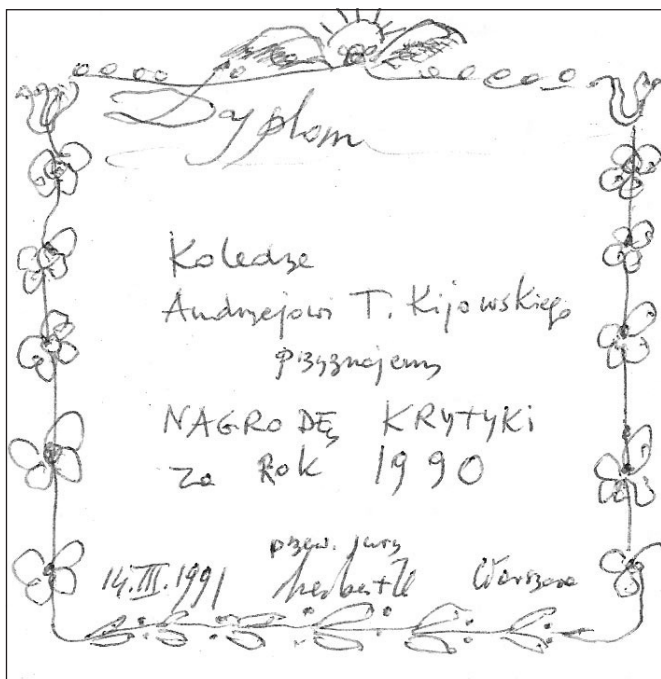 Dyplom
Koledze
Andrzejowi T. Kijowskiego
przyznajemy
NAGRODĘ KRYTYKI
za ROK 1990
przew. jury
14.III.1991 herbert Warszawa